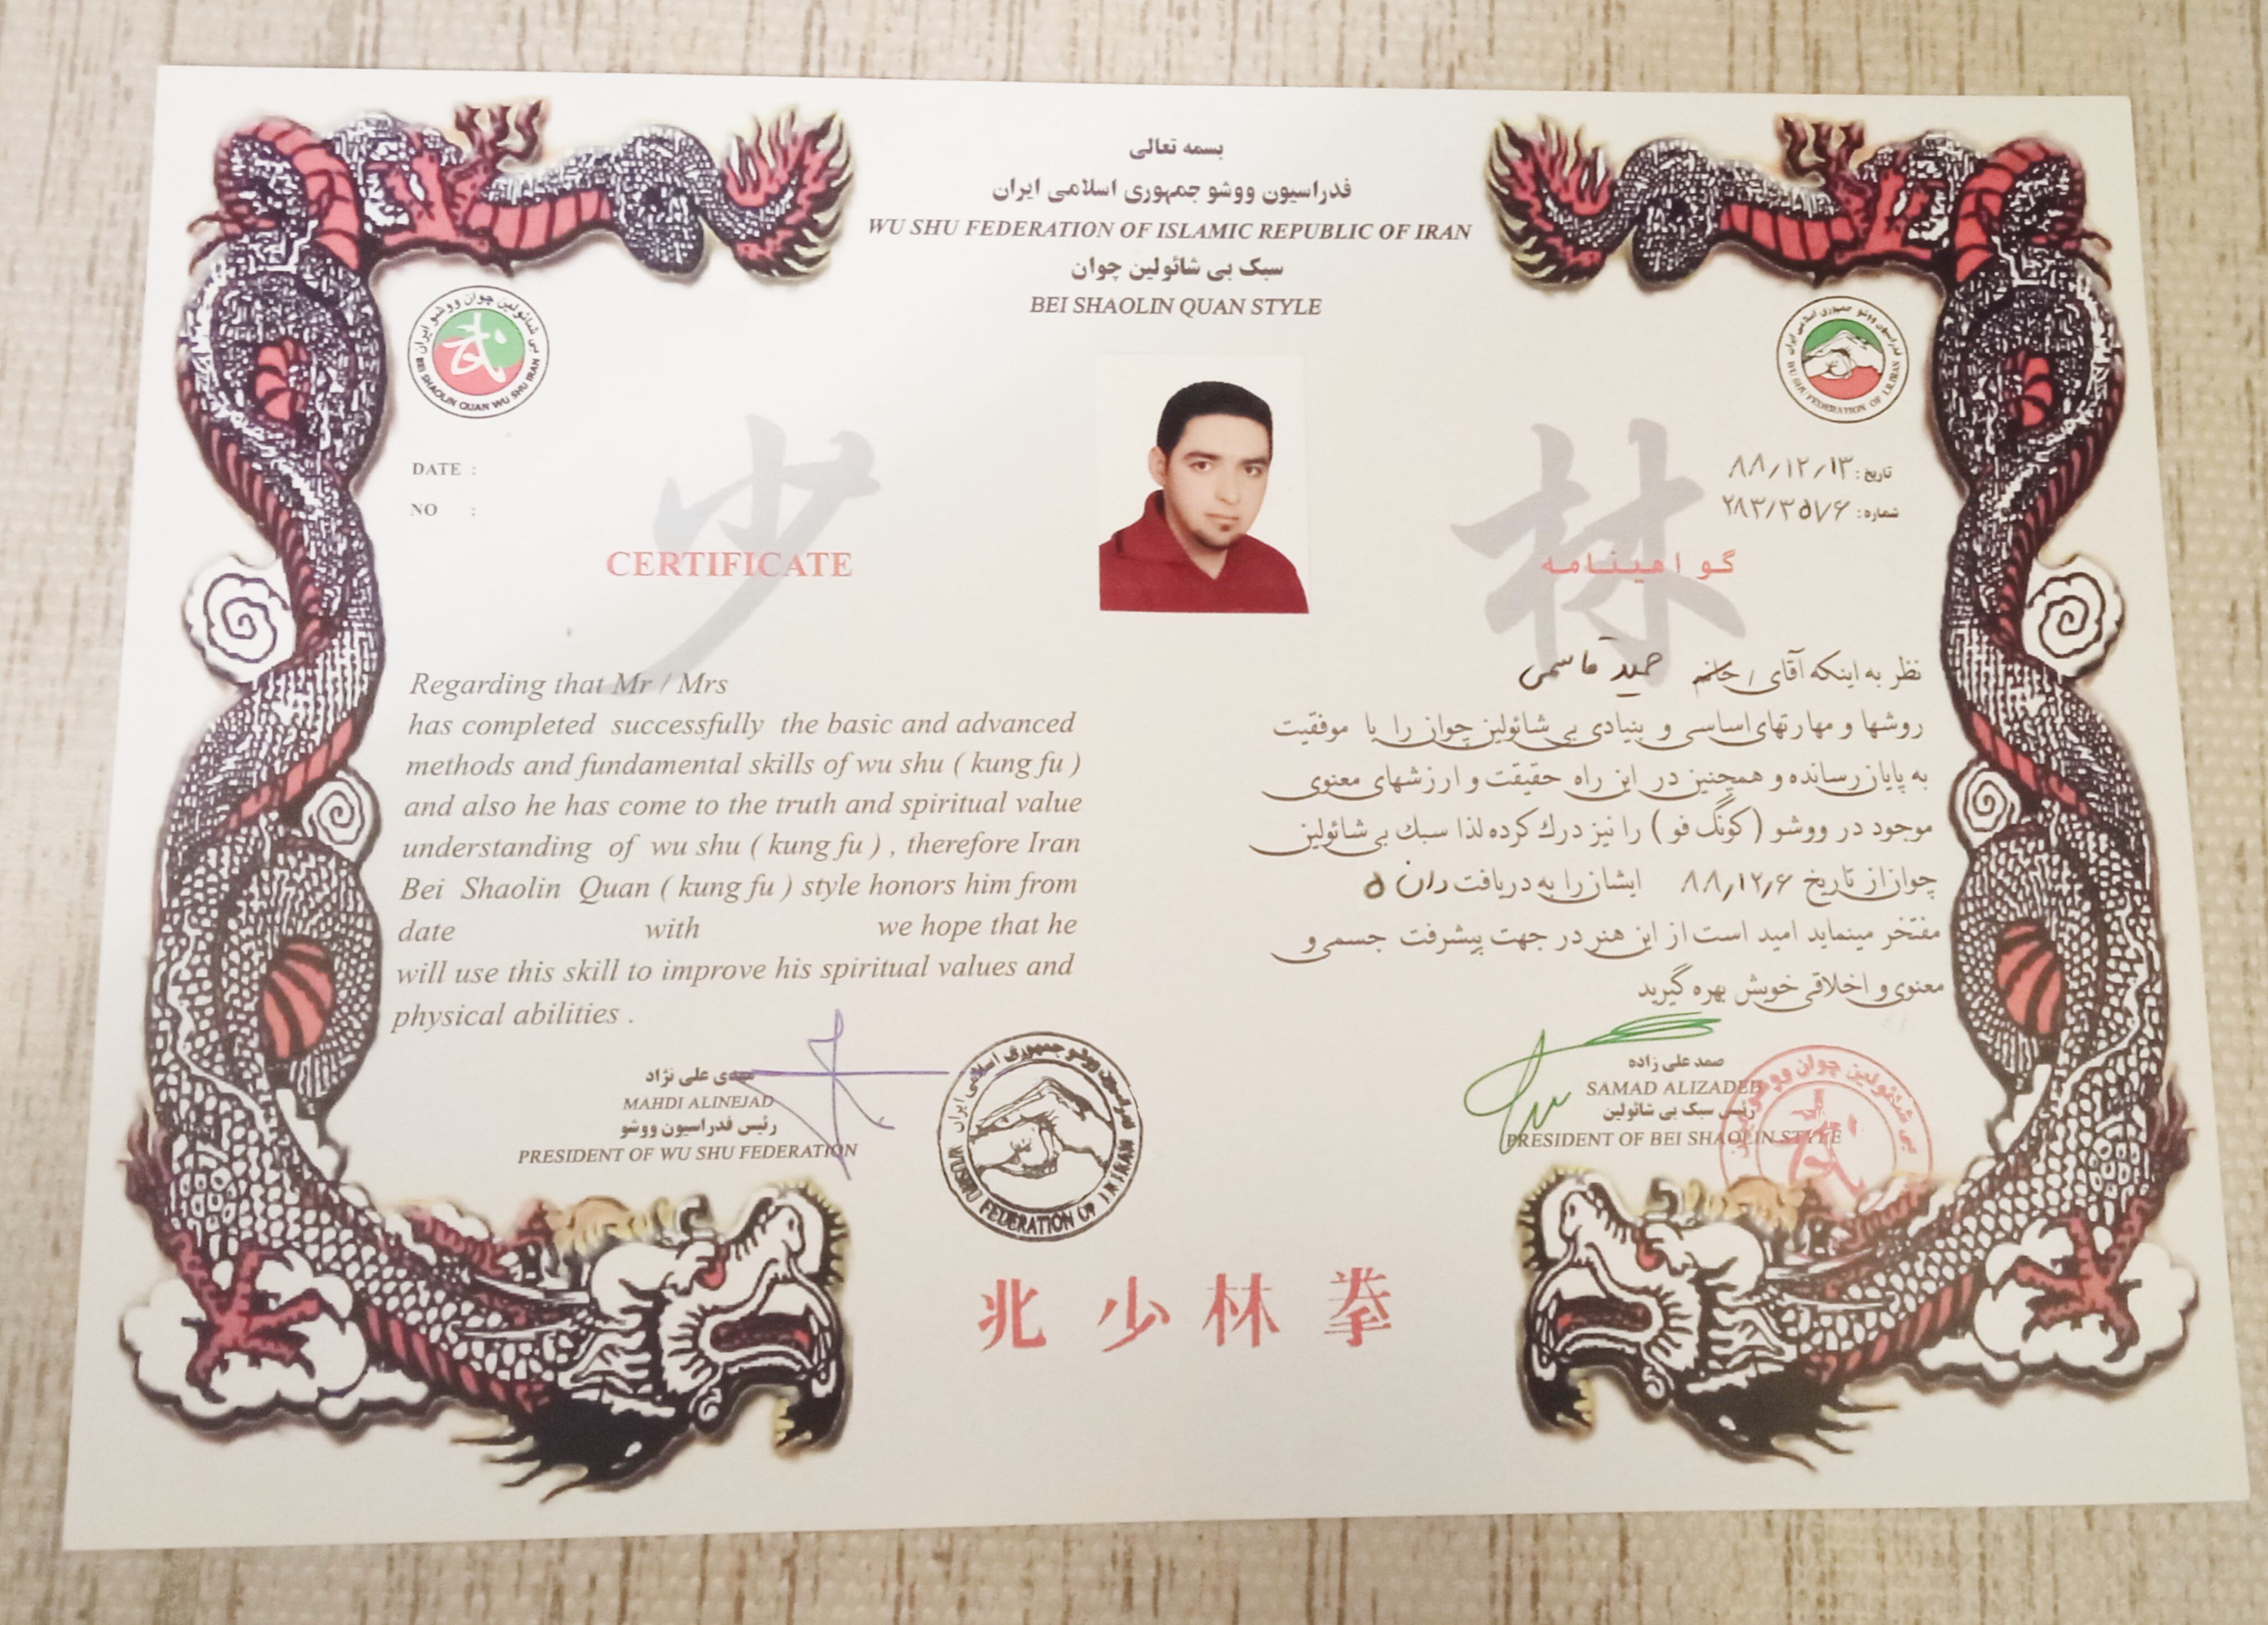 بسمه تعالی
فدراسیون ووشو جمهوری اسلامی ایران
WU SHU FEDERATION OF ISLAMIC REPUBLIC OF IRAN
سبک بی شائولین چوان
BEI SHAOLIN QUAN STYLE
بی شائولین چوان ووشو ایران
BEI SHAOLIN QUAN WU SHU IRAN
فدراسیون ووشو جمهوری اسلامی ایران
WU SHU FEDERATION OF I.R.IRAN
少林
DATE :
NO :
CERTIFICATE
Regarding that Mr / Mrs
has completed successfully the basic and advanced
methods and fundamental skills of wu shu ( kung fu )
and also he has come to the truth and spiritual value
understanding of wu shu ( kung fu ) , therefore Iran
Bei Shaolin Quan ( kung fu ) style honors him from
date with we hope that he
will use this skill to improve his spiritual values and
physical abilities .
تاریخ: ۸۸/۱۲/۱۳
شماره: ۲۸۳/۳۵۷۶
گواهینامه
نظر به اینکه آقای / خانم حمید قاسمی
روشها و مهارتهای اساسی و بنیادی بی شائولین چوان را با موفقیت
به پایان رسانده و همچنین در این راه حقیقت و ارزشهای معنوی
موجود در ووشو (کونگ فو) را نیز درك کرده لذا سبك بی شائولین
چوان از تاریخ ۸۸/۱۲/۶ ایشان را به دریافت دان ۵
مفتخر مینماید امید است از این هنر در جهت پیشرفت جسمی و
معنوی و اخلاقی خویش بهره گیرید
مهدی علی نژاد
MAHDI ALINEJAD
رئیس فدراسیون ووشو
PRESIDENT OF WU SHU FEDERATION
فدراسیون ووشو جمهوری اسلامی ایران
WUSHU FEDERATION OF I.R.IRAN
صمد علی زاده
SAMAD ALIZADEH
رئیس سبک بی شائولین
PRESIDENT OF BEI SHAOLIN STYLE
北少林拳